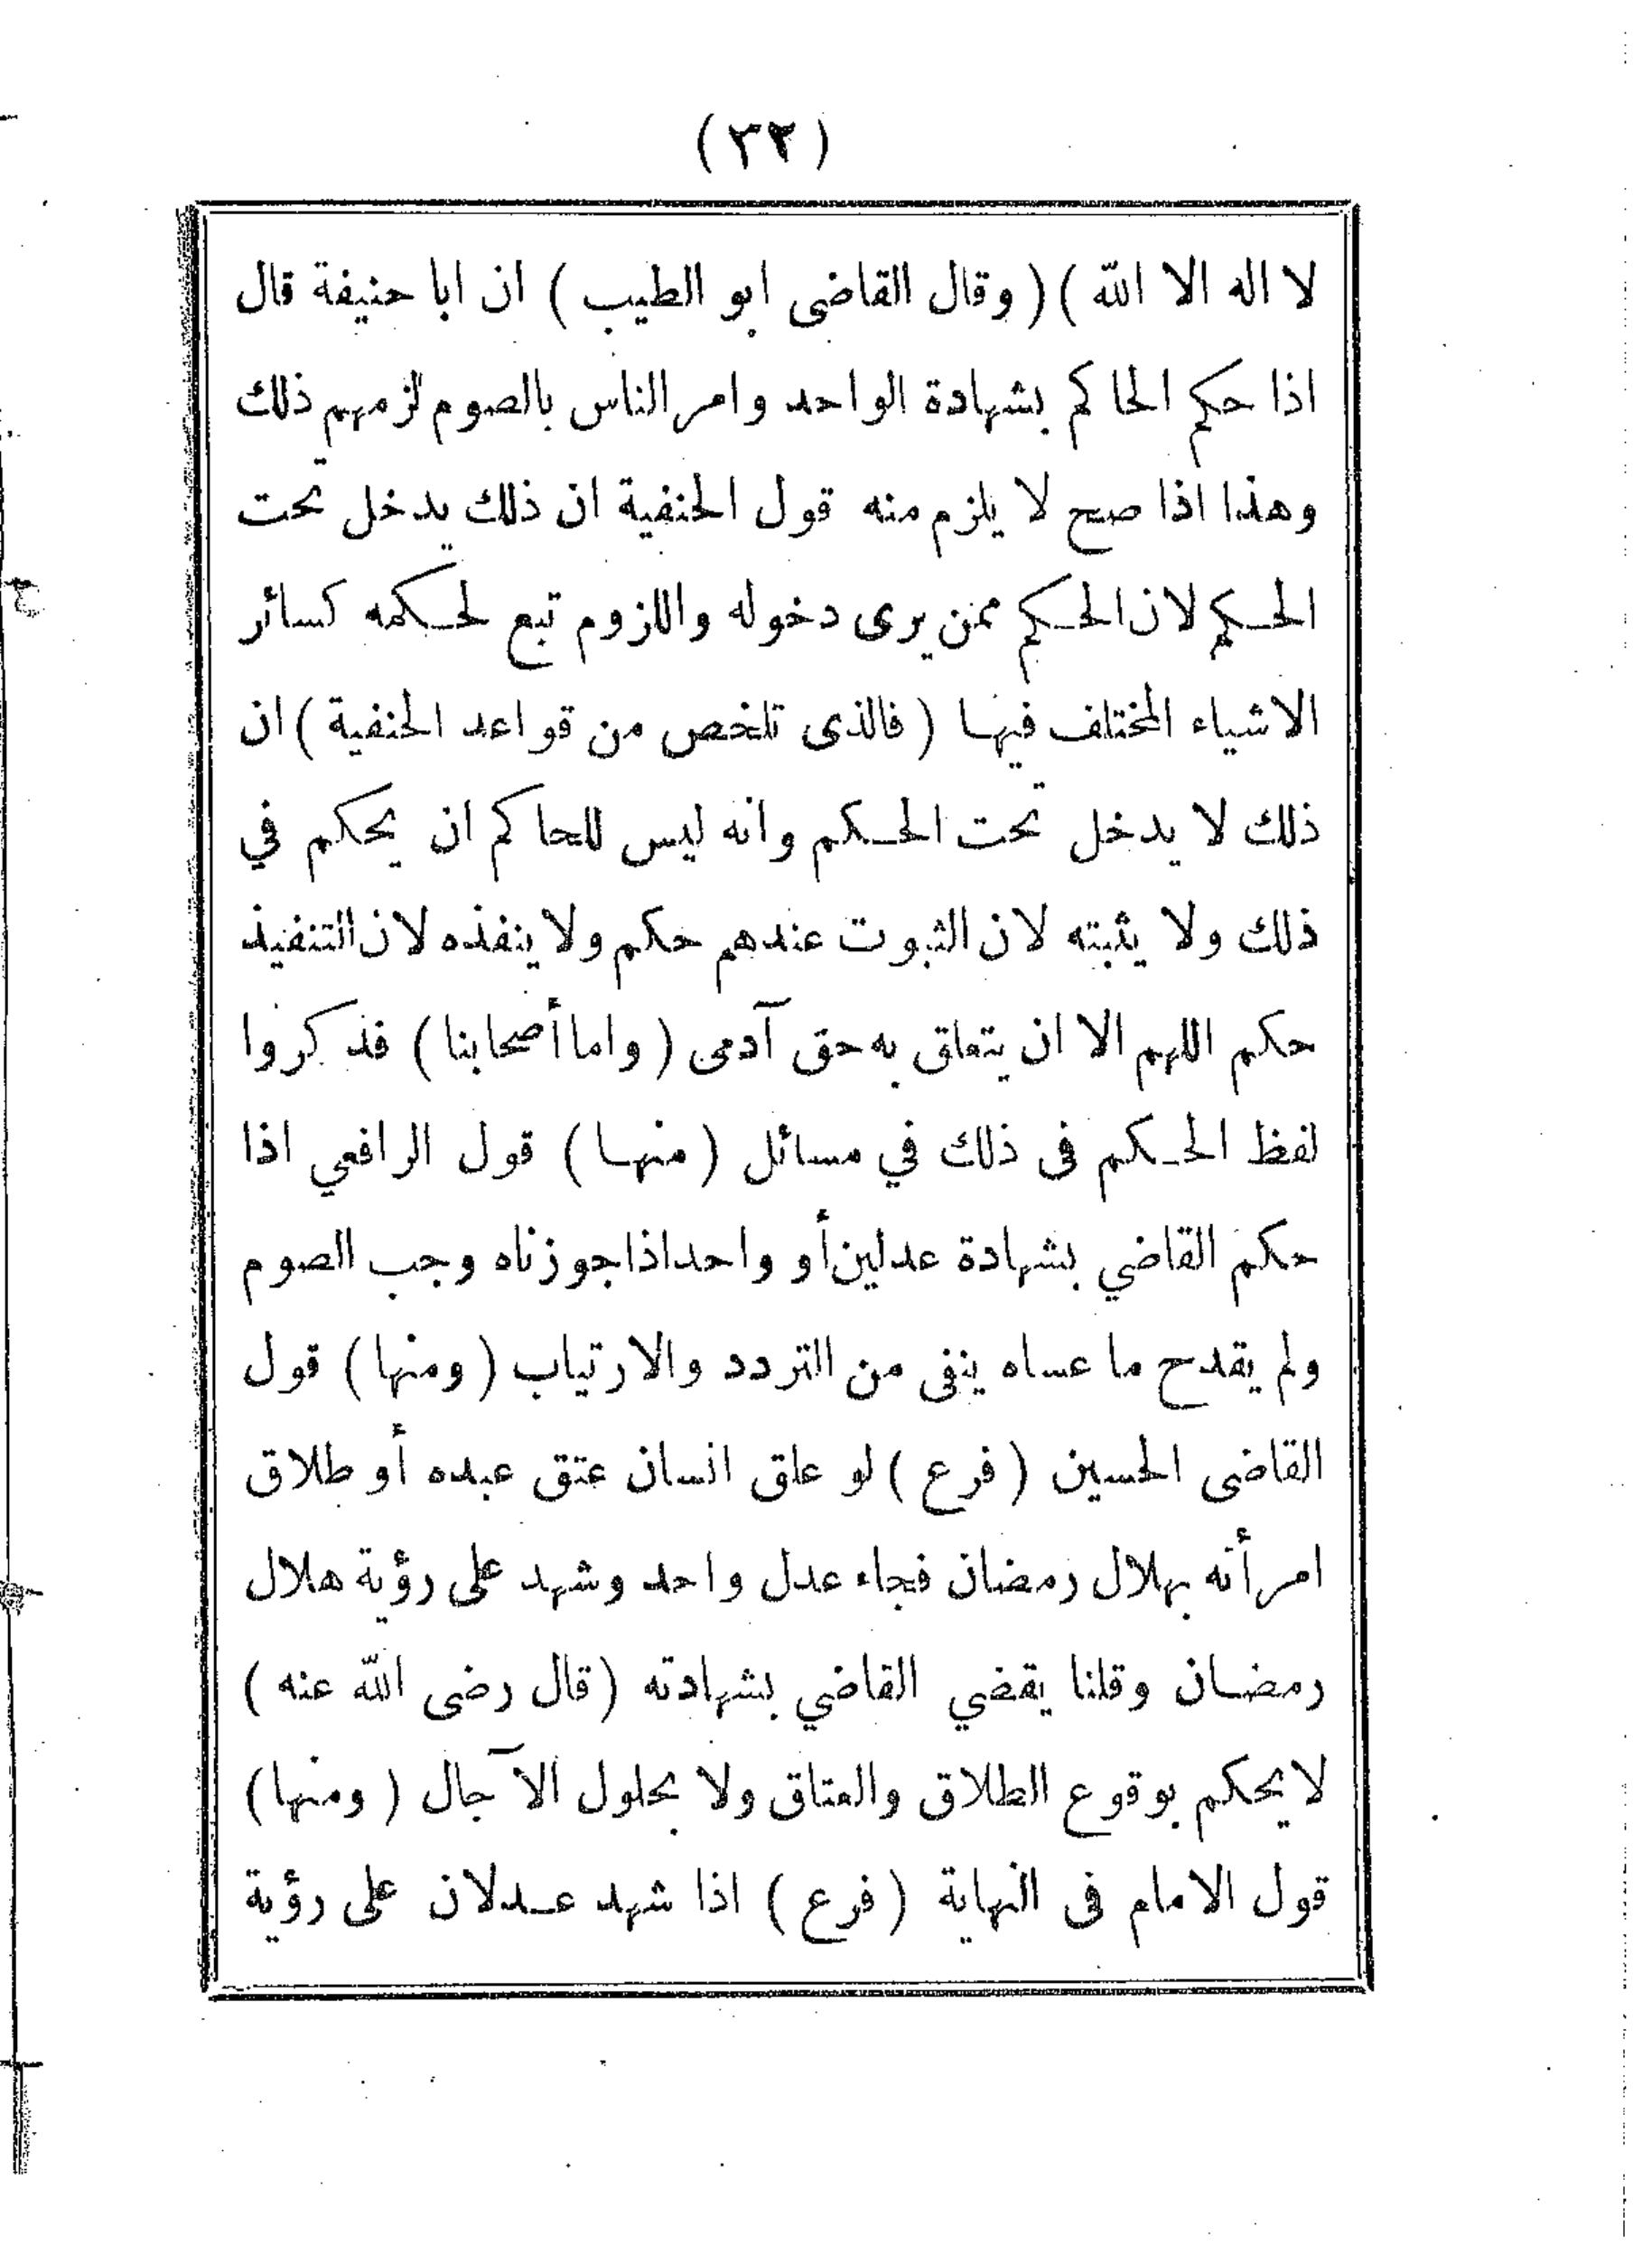 (٣٣)
لا اله الا الله ) ( وقال القاضى ابو الطيب ) ان ابا حنيفة قال
اذا حكم الحاكم بشهادة الواحد وامر الناس بالصوم لزمهم ذلك
وهذا اذا صح لا يلزم منه قول الحنفية ان ذلك يدخل تحت
الحكم لان الحكم ممن يرى دخوله واللزوم تبع لحكمه كسائر
الاشياء المختلف فيها ( فالذى تلخص من قواعد الحنفية ) ان
ذلك لا يدخل تحت الحكم وانه ليس للحاكم ان يحكم في
ذلك ولا يثبته لان الثبوت عندهم حكم ولا ينفذه لان التنفيذ
حكم اللهم الا ان يتعلق به حق آدمى ( واما أصحابنا ) فذكروا
لفظ الحكم فى ذلك في مسائل ( منها ) قول الرافعي اذا
حكم القاضي بشهادة عدلين أو واحد اذا جوزناه وجب الصوم
ولم يقدح ما عساه ينفى من التردد والارتياب ( ومنها ) قول
القاضى الحسين ( فرع ) لو علق انسان عتق عبده أو طلاق
امرأته بهلال رمضان فجاء عدل واحد وشهد على رؤية هلال
رمضان وقلنا يقضي القاضي بشهادته ( قال رضى الله عنه )
لا يحكم بوقوع الطلاق والعتاق ولا بحلول الآجال ( ومنها )
قول الامام فى النهاية ( فرع ) اذا شهد عدلان على رؤية